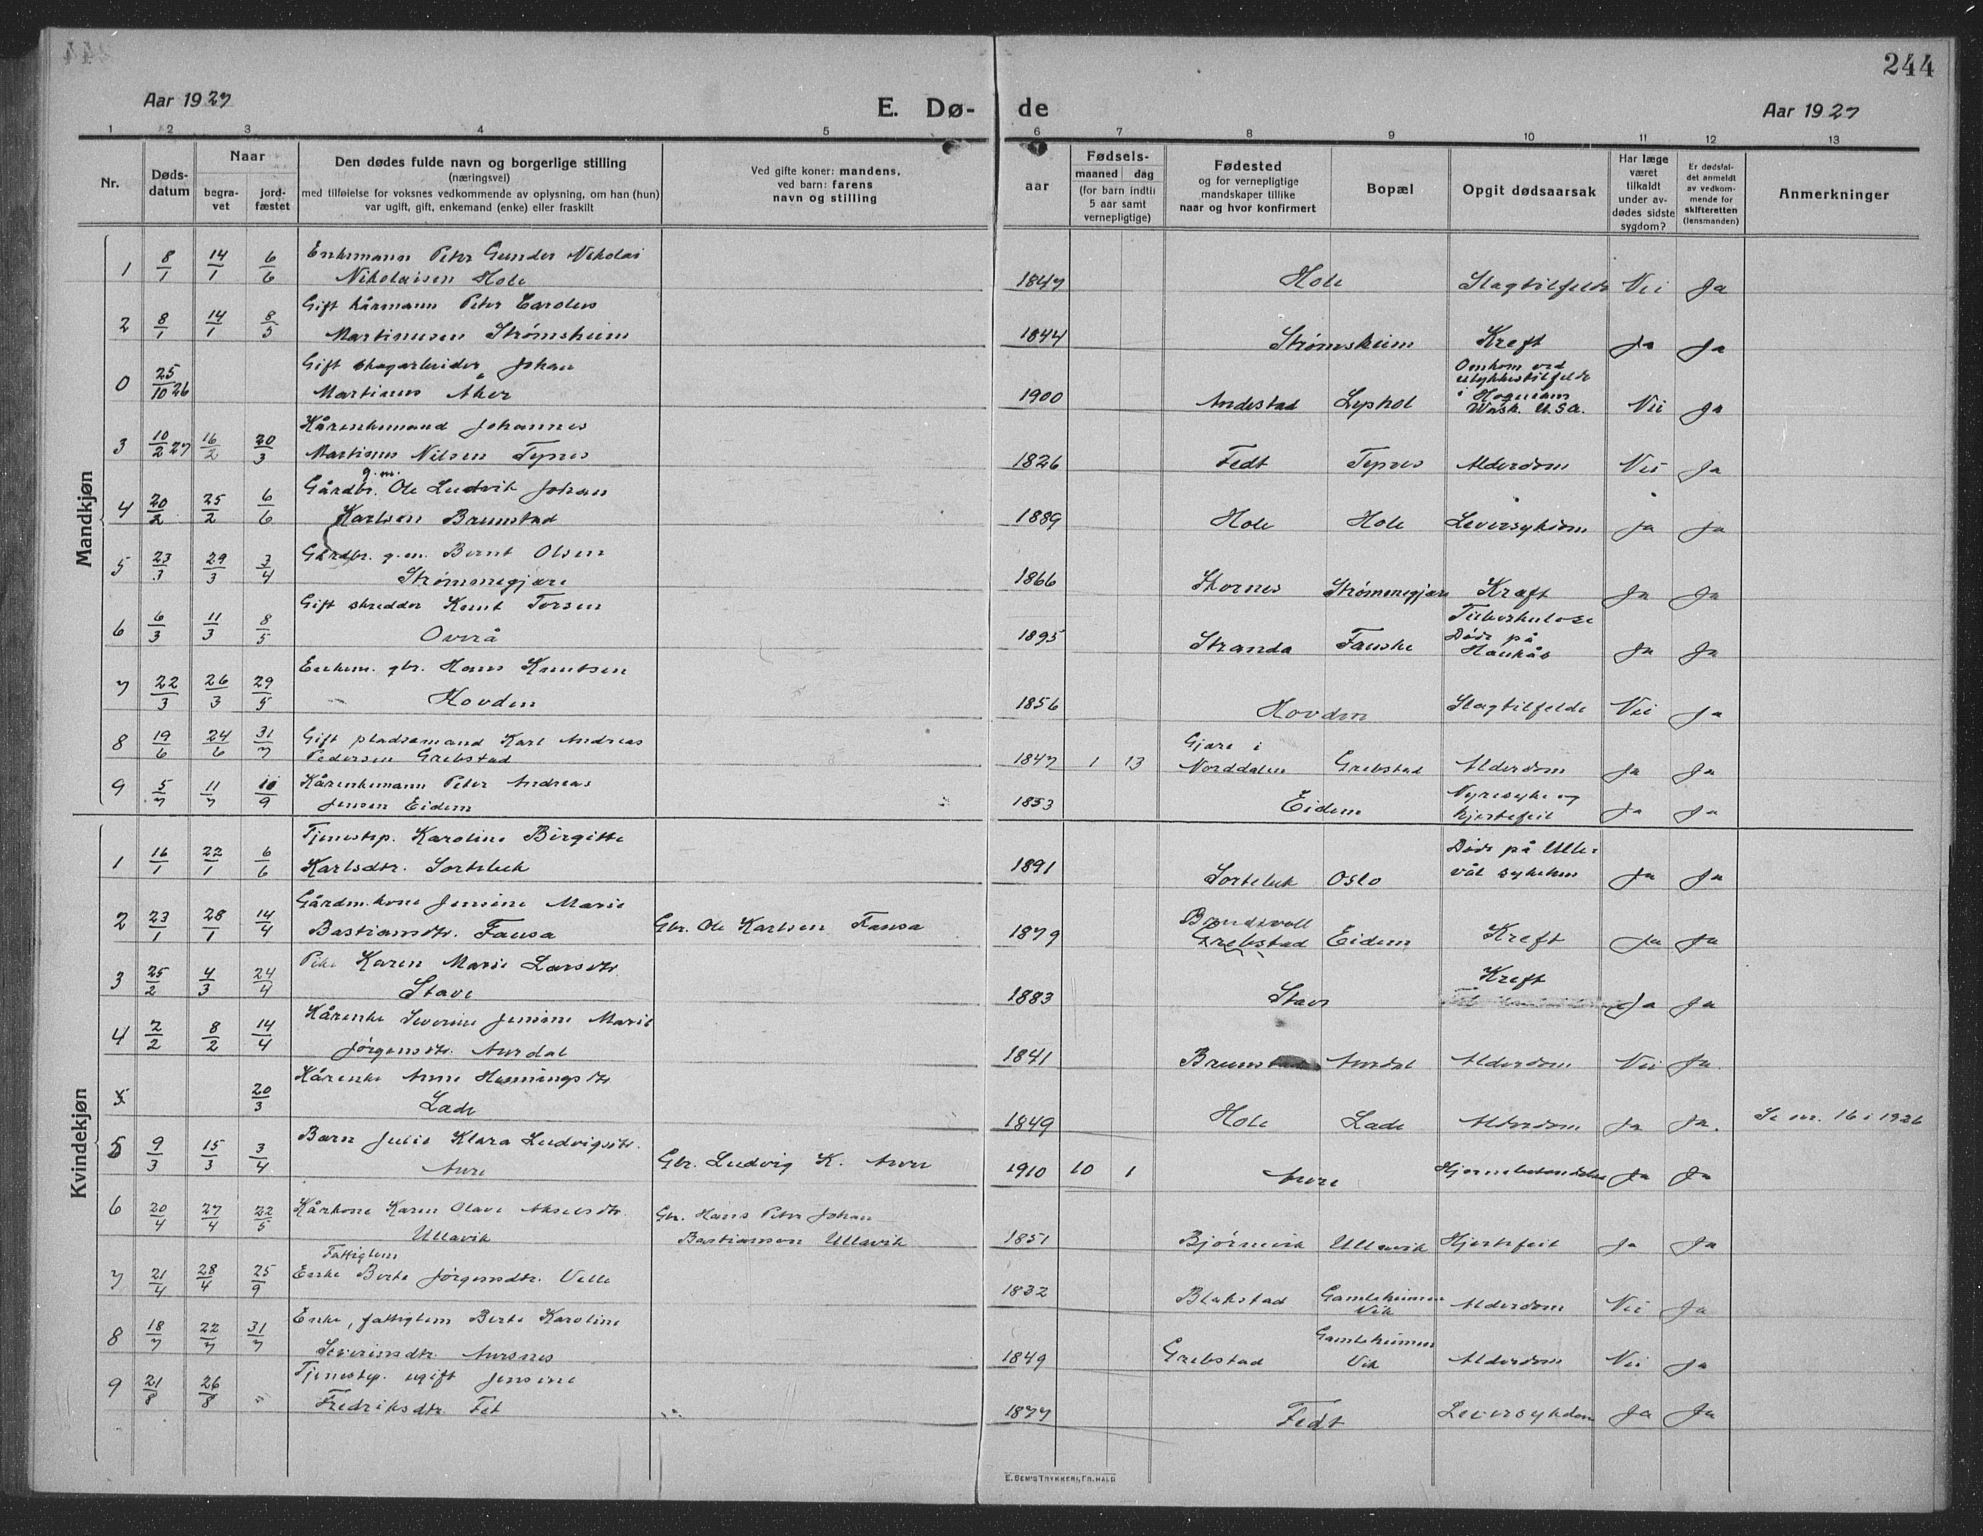 244
Aar 1927 E. Dø- de Aar 1927
1 2 3 4 5 6 7 8 9 10 11 12 13
Nr.
Døds-
datum
Naar
begra-
vet
jord-
fæstet
Den dødes fulde navn og borgerlige stilling
(næringsvei)
med tilføielse for voksnes vedkommende av oplysning, om han (hun)
var ugift, gift, enkemand (enke) eller fraskilt
Ved gifte koner: mandens,
ved barn: farens
navn og stilling
aar
Fødsels-
maaned dag
(for barn indtil
5 aar samt
vernepligtige)
Fødested
og for vernepligtige
mandskaper tillike
naar og hvor konfirmert
Bopæl
Opgit dødsaarsak
Har læge
været
tilkaldt
under av-
dødes sidste
sygdom?
Er dødsfal-
det anmeldt
av vedkom-
mende for
skifteretten
(lensmanden)
Anmerkninger
Mandkjøn
1 8/1 14/1 6/6 Enkemann Peter Gunder Nikolai
Nikolaisen Hole 1847 Hole Slagtilfelde Nei Ja
2 8/1 14/1 8/5 Gift kårmann Peter Carolus
Martinusen Strømsheim 1844 Strømsheim Kreft Ja Ja
0 25/10 26 Gift skogarbeider Johan
Martinus Aker 1900 Andestad Lyshol Omkom ved
ulykkestilfelde
i Hoquiam
Wash. U.S.A. Nei Ja
3 10/2 27 16/2 20/3 Kårenkemand Johannes
Martinus Nilsen Tynes 1826 Fedt Tynes Alderdom Nei Ja
4 20/2 25/2 6/6 Gårdbr. g.m. Ole Ludvik Johan
Karlsen Brunstad 1889 Hole Hole Leversykdom Ja Ja
5 23/3 29/3 3/4 Gårdbr. g.m. Bernt Olsen
Strømmegjære 1866 Skornes Strømmegjære Kreft Ja Ja
6 6/3 11/3 8/5 Gift skredder Knut Torsen
Overå 1895 Stranda Fauske Tuberkulose
Døde på
Haukås Ja Ja
7 22/3 26/3 29/5 Enkem. gbr. Hans Knutsen
Hovden 1856 Hovden Slagtilfelde Nei Ja
8 19/6 24/6 31/7 Gift pladsemand Karl Andreas
Pedersen Grebstad 1847 1 13 Gjære i
Norddalen Grebstad Alderdom Ja Ja
9 5/7 11/7 10/9 Kårenkemann Peter Andreas
Jensen Eidem 1853 Eidem Nyresyke og
hjertefeil Ja Ja
Kvindekjøn
1 16/1 22/1 6/6 Tjenestep. Karoline Birgitte
Karlsdtr. Sortebek 1891 Sortebek Oslo Døde på Ulle-
vål sykehus Ja Ja
2 23/1 28/1 14/4 Gårdm.kone Jensine Marie
Bastiansdtr. Fausa Gbr. Ole Karlsen Fausa 1879 Brudevoll
Grebstad Eidem Kreft Ja Ja
3 25/2 4/3 24/4 Pike Karen Marie Larsdtr.
Stave 1883 Stave Kreft Ja Ja
4 2/2 8/2 14/4 Kårenke Severine Jensine Marie
Jørgensdtr. Aurdal 1841 Brunstad Aurdal Alderdom Nei Ja.
5 20/3 Kårenke Anne Henningsdtr
Lade 1849 Hole Lade Alderdom Ja Ja. Se nr. 16 i 1926
5 9/3 15/3 3/4 Barn Julie Klara Ludvigsdtr.
Aure Gbr. Ludvig K. Aure 1910 10 1 Aure Hjernebetendelse Ja Ja
6 20/4 27/4 22/5 Kårkone Karen Olave Akselsdtr.
Ullavik Gbr. Hans Peter Johan
Bastianson Ullavik 1851 Bjørnevik Ullavik Hjertefeil Ja Ja
7 21/4 28/4 25/9 Fattiglem
Enke Berte Jørgensdtr. Velle 1832 Blakstad Gamleheimen
Vik Alderdom Nei Ja
8 18/7 22/7 31/7 Enke, fattiglem Berte Karoline
Severinsdtr. Aursnes 1849 Grebstad Gamleheimen
Vik Alderdom Nei Ja
9 21/8 26/8 " Tjenestep. ugift Jensine
Fredriksdtr. Fet 1877 Fedt Leversykdom Ja Ja
E. SEM'S TRYKKERI, FR.HALD